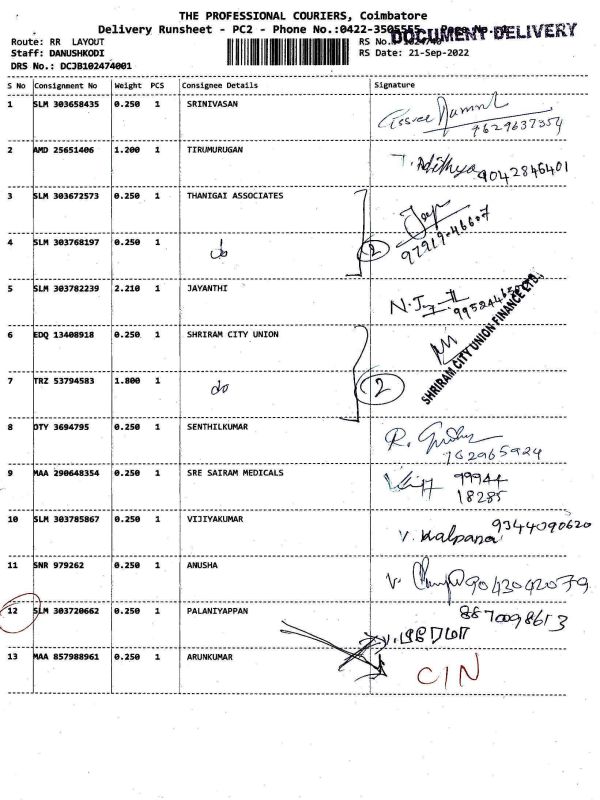 THE PROFESSIONAL COURIERS, Coimbatore
Delivery Runsheet - PC2 - Phone No.:0422-3505555
DOCUMENT DELIVERY
Route: RR LAYOUT
Staff: DANUSHKODI
RS No.:
RS Date: 21-Sep-2022
DRS No.: DCJB102474001
S No Consignment No Weight PCS Consignee Details Signature
1 SLM 303658435 0.250 1 SRINIVASAN
7629637354
2 AMD 25651406 1.200 1 TIRUMURUGAN T. Adithya 9042846401
3 SLM 303672573 0.250 1 THANIGAI ASSOCIATES
97919-46607
4 SLM 303768197 0.250 1 do 2
5 SLM 303782239 2.210 1 JAYANTHI
6 EDQ 13408918 0.250 1 SHRIRAM CITY UNION
SHRIRAM CITY UNION FINANCE LTD.
7 TRZ 53794583 1.800 1 do 2
8 OTY 3694795 0.250 1 SENTHILKUMAR
762965924
9 MAA 290648354 0.250 1 SRE SAIRAM MEDICALS 99944
18285
10 SLM 303785867 0.250 1 VIJIYAKUMAR V. Kalpana 9344090620
11 SNR 979262 0.250 1 ANUSHA 9043042079
12 SLM 303720662 0.250 1 PALANIYAPPAN 8870098613
13 MAA 857988961 0.250 1 ARUNKUMAR C/N